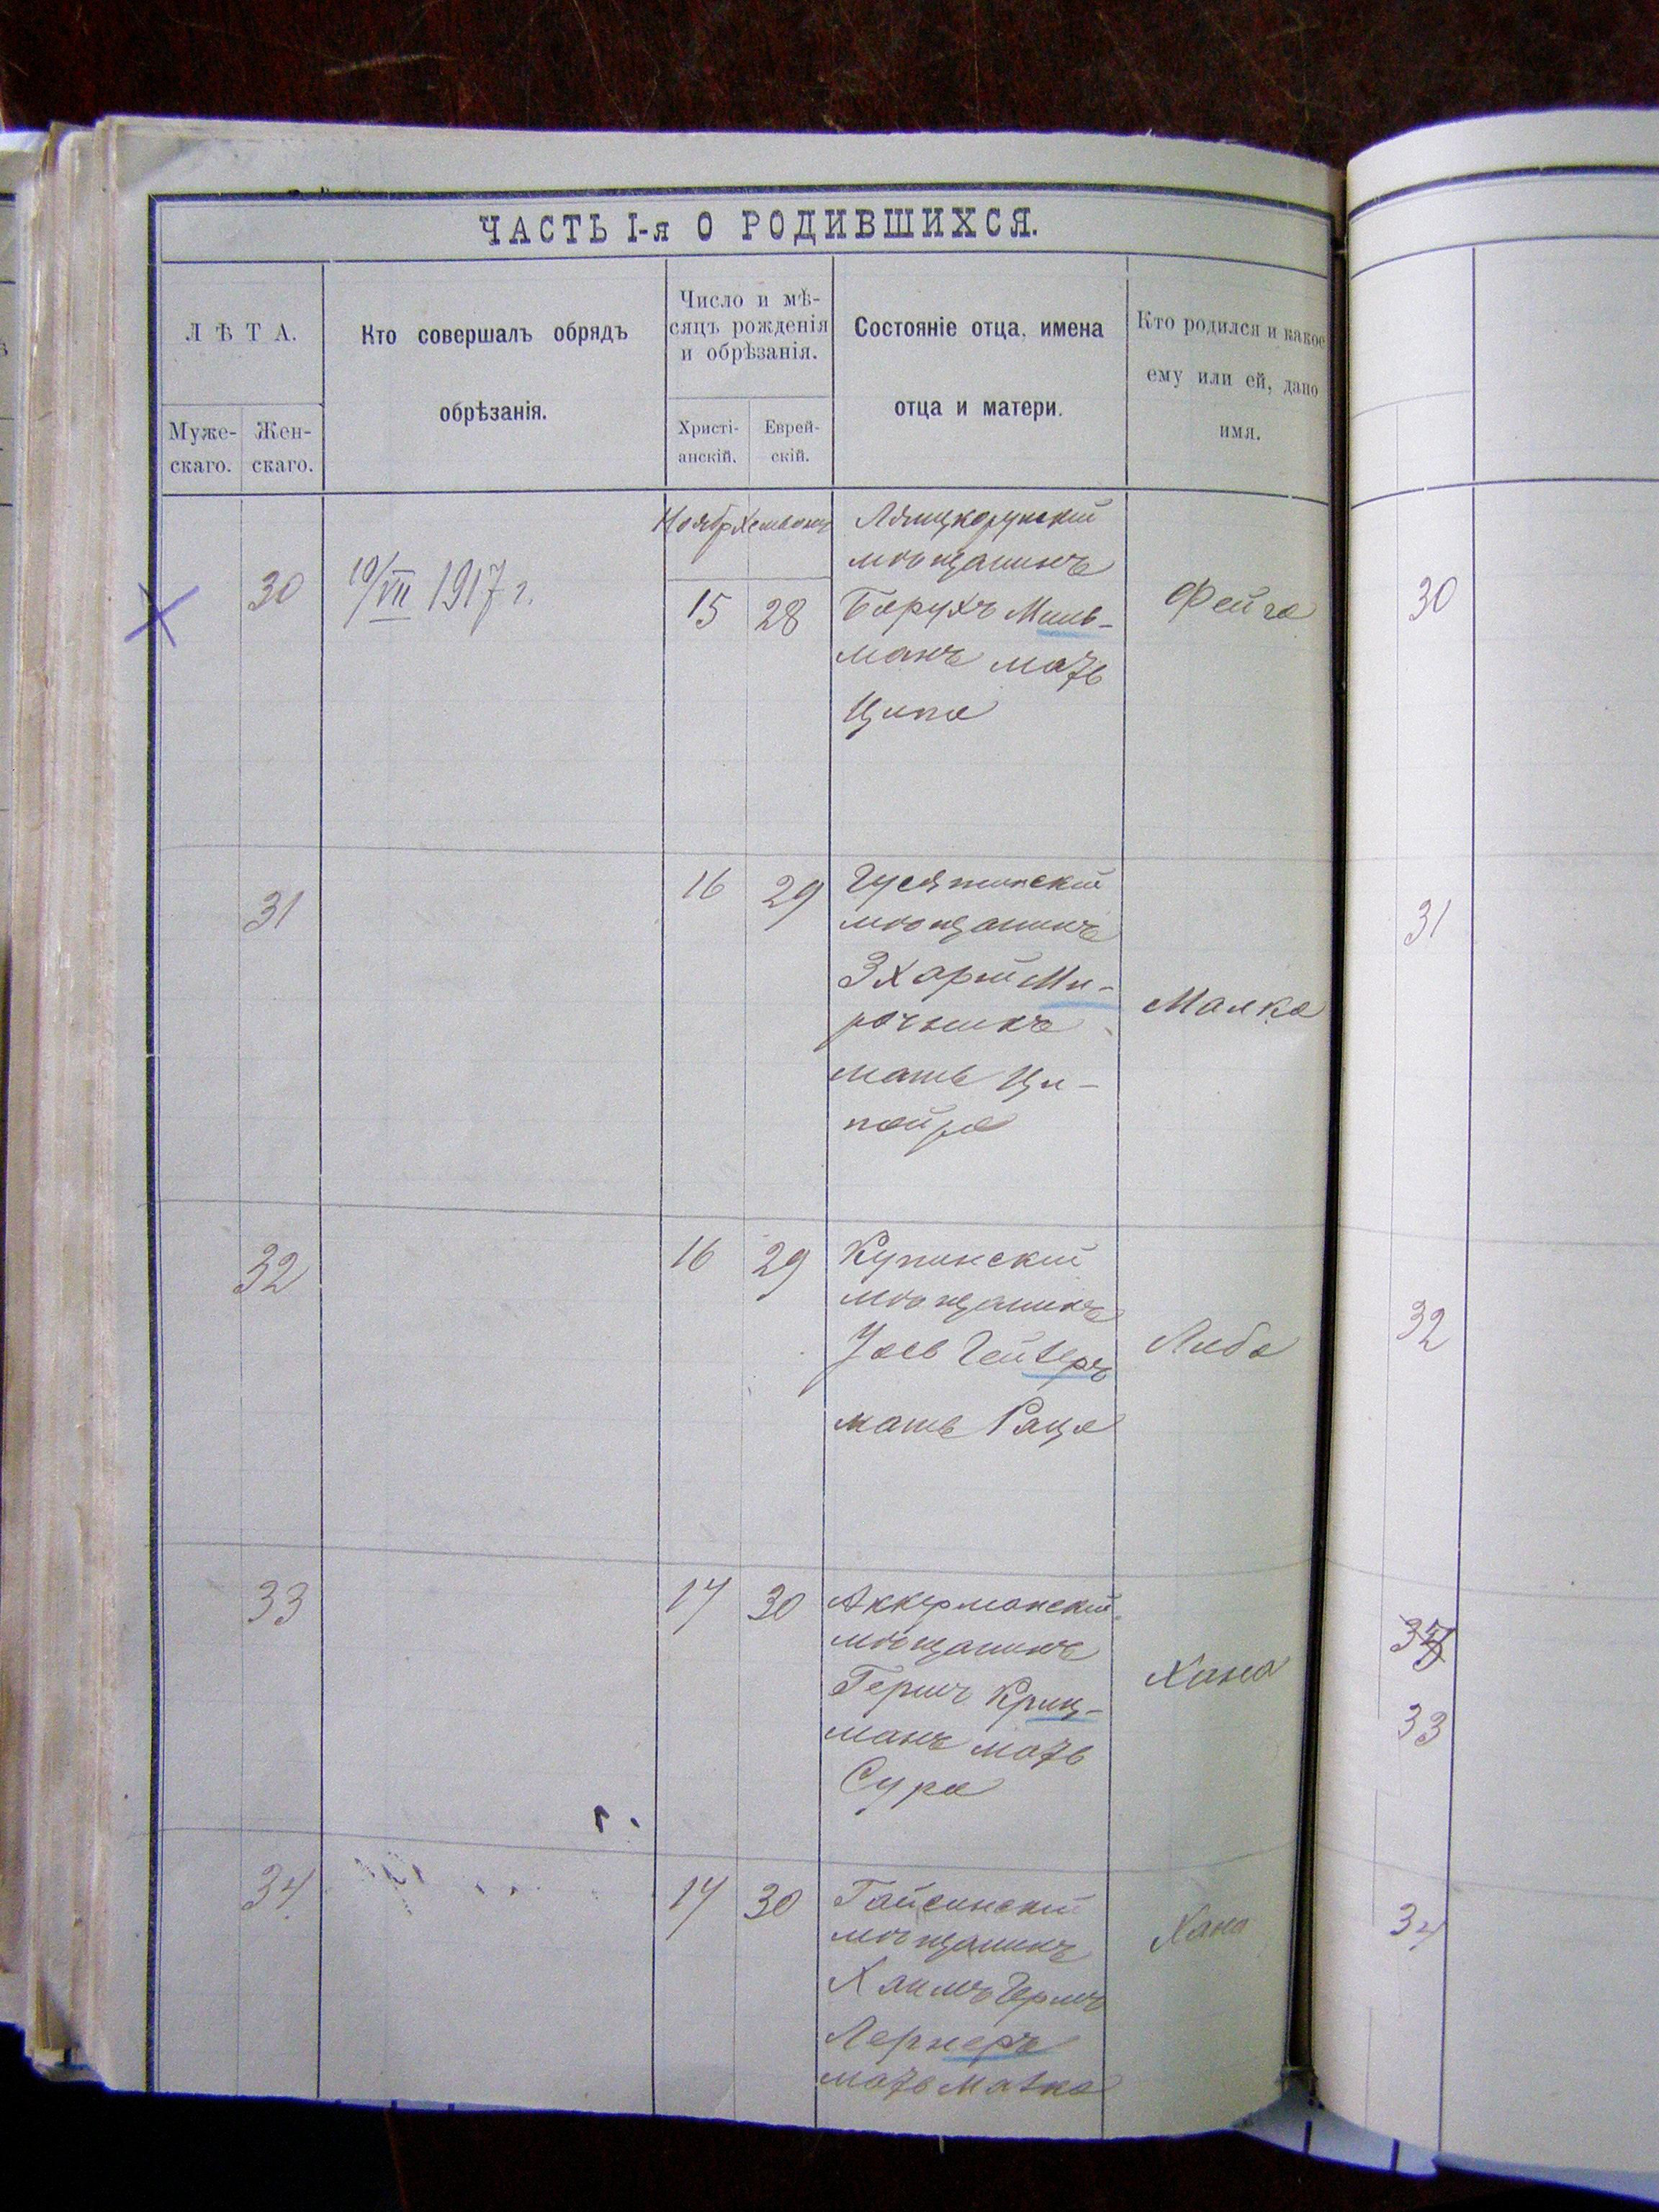 ЧАСТЬ I-я О РОДИВШИХСЯ.
ЛѢТА.
Муже-
скаго.
Жен-
скаго.
Кто совершалъ обрядъ
обрѣзанія.
Число и мѣ-
сяцъ рожденія
и обрѣзанія.
Христі-
анскій.
Еврей-
скій.
Состояніе отца, имена
отца и матери.
Кто родился и какое
ему или ей, дано
имя.
30
10/VII 1917 г.
Ноябр
15
28
мѣщанинъ
Борухъ Миль-
манъ мать
Ципа
Фейга
30
31
16
29
Гусятинскій
мѣщанинъ
Зхарій Ми-
рочникъ
мать Ци-
пойра
Малка
31
32
16
29
Купинскій
мѣщанинъ
мать Раца
Либа
32
33
17
30
Аккерманскій
мѣщанинъ
Гершъ Криц-
манъ мать
Сура
Хана
33
34
17
30
Гайсинскій
мѣщанинъ
Хаимъ Гершъ
Лернеръ
мать
Хана
34